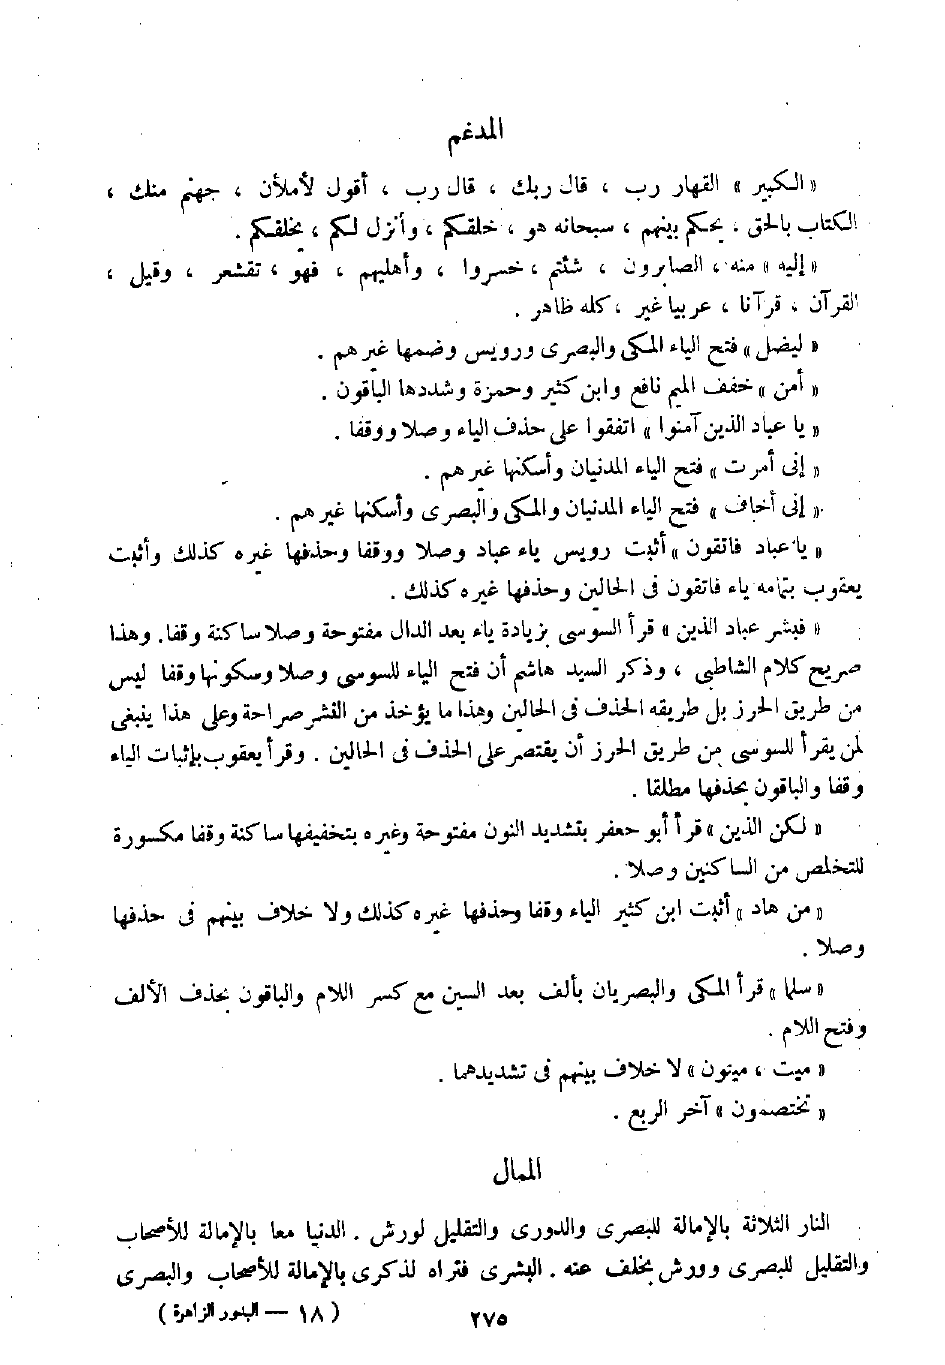 المدغم
« الكبير » القهار رب ، قال ربك ، قال رب ، أقول لأملأن ، جهنم منك ،
الكتاب بالحق ، يحكم بينهم ، سبحانه هو ، خلقكم ، وأنزل لكم ، يخلقكم .
« إليه » منه ، الصابرون ، شئتم ، خسروا ، وأهليهم ، فهو ، تقشعر ، وقيل ،
القرآن ، قرآنا ، عربيا غير ، كله ظاهر .
« ليضل » فتح الياء المكى والبصرى ورويس وضمها غيرهم .
« أمن » خفف الميم نافع وابن كثير وحمزة وشددها الباقون .
« يا عباد الذين آمنوا » اتفقوا على حذف الياء وصلا ووقفا .
« إنى أمرت » فتح الياء المدنيان وأسكنها غيرهم .
« إنى أخاف » فتح الياء المدنيان والمكى والبصرى وأسكنها غيرهم .
« يا عباد فاتقون » أثبت رويس ياء عباد وصلا ووقفا وحذفها غيره كذلك وأثبت
يعقوب بتمامه ياء فاتقون فى الحالين وحذفها غيره كذلك .
« فبشر عباد الذين » قرأ السوسى بزيادة ياء بعد الدال مفتوحة وصلا ساكنة وقفا . وهذا
صريح كلام الشاطبى ، وذكر السيد هاشم أن فتح الياء للسوسى وصلا وسكونها وقفا ليس
من طريق الحرز بل طريقه الحذف فى الحالين وهذا ما يؤخذ من النشر صراحة وعلى هذا ينبغى
لمن يقرأ للسوسى من طريق الحرز أن يقتصر على الحذف فى الحالين . وقرأ يعقوب بإثبات الياء
وقفا والباقون بحذفها مطلقا .
« لكن الذين » قرأ أبو جعفر بتشديد النون مفتوحة وغيره بتخفيفها ساكنة وقفا مكسورة
للتخلص من الساكنين وصلا .
« من هاد » أثبت ابن كثير الياء وقفا وحذفها غيره كذلك ولا خلاف بينهم فى حذفها
وصلا .
« سلما » قرأ المكى والبصريان بألف بعد السين مع كسر اللام والباقون بحذف الألف
وفتح اللام .
« ميت ، ميتون » لا خلاف بينهم فى تشديدهما .
« تختصمون » آخر الربع .
الممال
النار الثلاثة بالإمالة للبصرى والدورى والتقليل لورش . الدنيا معا بالإمالة للأصحاب
والتقليل للبصرى وورش بخلف عنه . البشرى فتراه لذكرى بالإمالة للأصحاب والبصرى
٢٧٥ ( ١٨ — البدور الزاهرة )